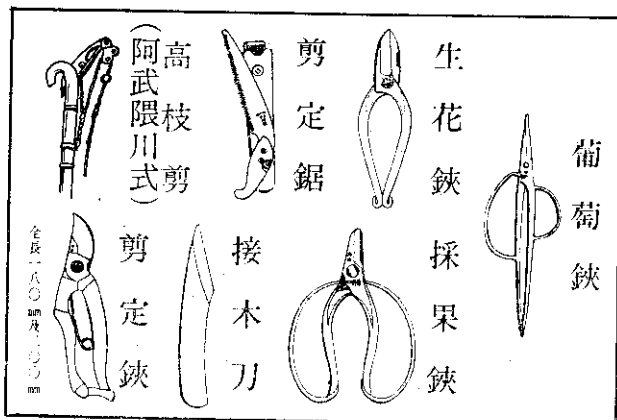 葡萄鋏
生花鋏
採果鋏
剪定鋸
接木刀
高枝剪
（阿武隈川式）
剪定鋏
全長一八〇mm及二〇〇mm